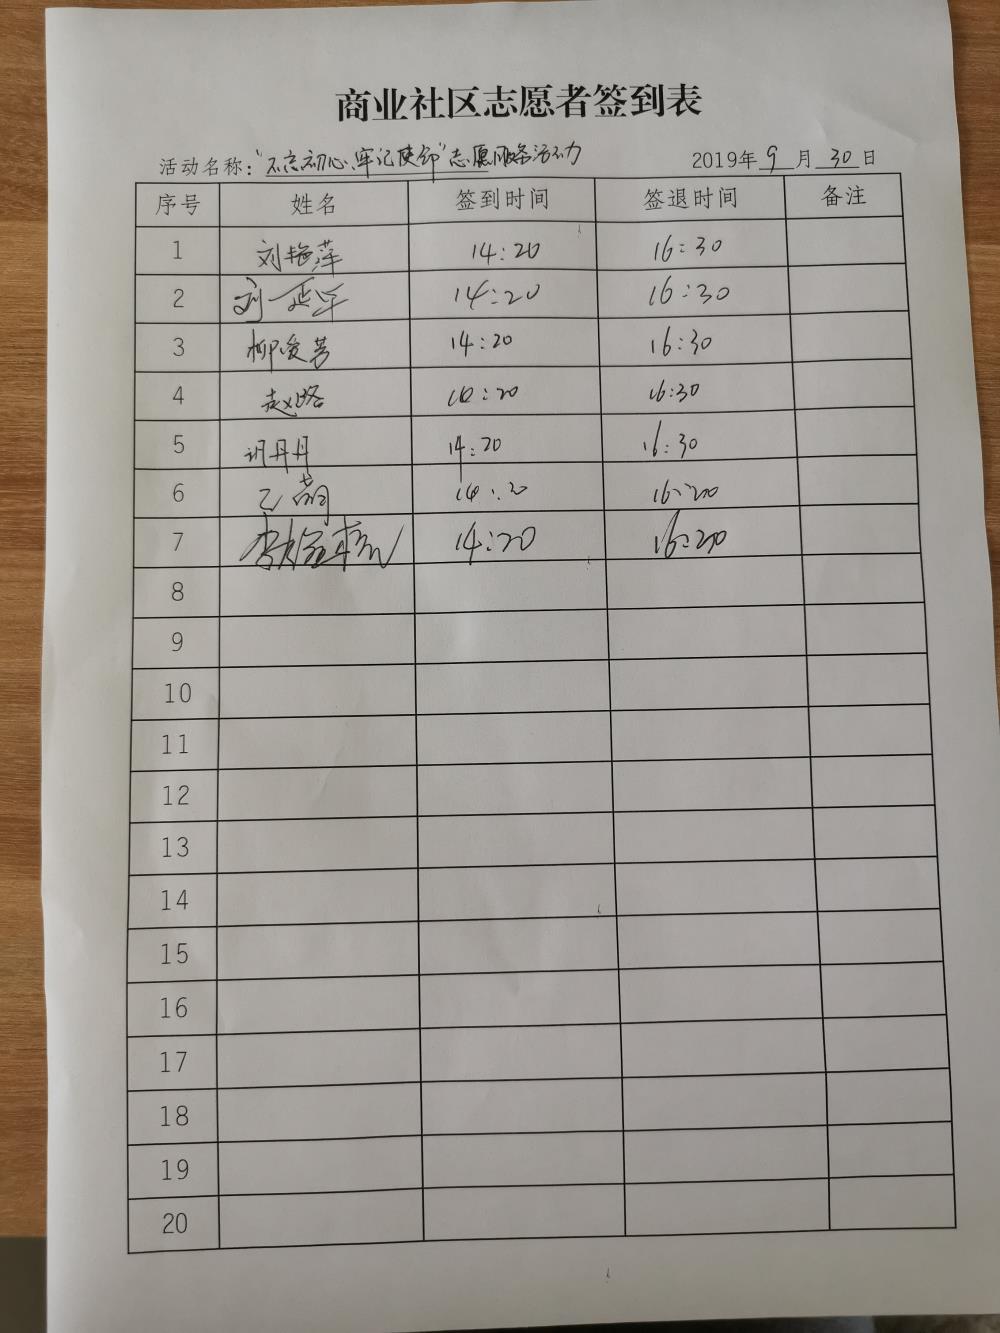 商业社区志愿者签到表
活动名称："不忘初心、牢记使命"志愿服务活动 2019年9月30日
序号 姓名 签到时间 签退时间 备注
1 刘艳萍 14:20 16:30
2 刘延军 14:20 16:30
3 柳俊芳 14:20 16:30
4 赵璐 14:20 16:30
5 丹丹 14:20 16:30
6 16:30
7 14:20
8
9
10
11
12
13
14
15
16
17
18
19
20